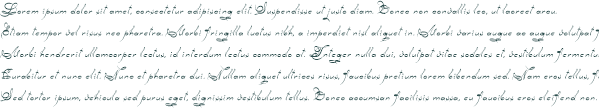 Lorem ipsum dolor sit amet, consectetur adipiscing elit. Suspendisse ut justo diam. Donec non convallis leo, ut laoreet arcu.
Etiam tempor vel risus nec pharetra. Morbi fringilla luctus nibh, a imperdiet nisl aliquet in. Morbi varius augue ac augue volutpat
Morbi hendrerit ullamcorper lectus, id interdum lectus commodo at. Integer nulla dui, volutpat vitae sodales et, vestibulum fermentu
Curabitur et nunc elit. Nunc et pharetra dui. Nullam aliquet ultrices risus, faucibus pretium lorem bibendum sed. Nam eros tellus,
Sed tortor ipsum, vehicula sed purus eget, dignissim vestibulum tellus. Donec accumsan facilisis massa, eu faucibus eros eleifend non.